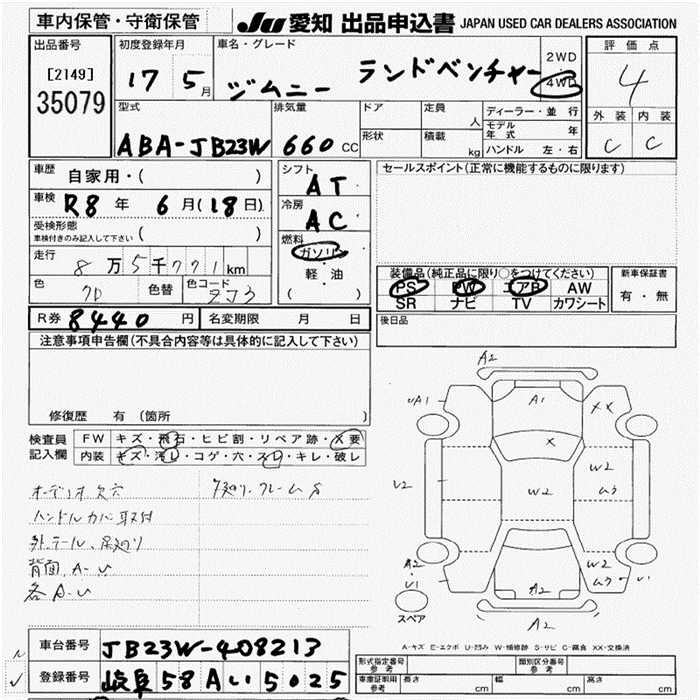 車内保管・守衛保管 JU 愛知 出品申込書 JAPAN USED CAR DEALERS ASSOCIATION
出品番号 初度登録年月 車名・グレード 評価点
[2149] 17 5月 ジムニー ランドベンチャー 2WD・4WD 4
35079
型式 排気量 ドア 定員 人 ディーラー・並行 外装 内装
モデル年式 年
ABA-JB23W 660 CC 形状 積載 kg ハンドル 左・右 C C
車歴 自家用・( ) シフト AT セールスポイント(正常に機能するものに限ります)
車検 R8年 6月(18日) 冷房 AC
受検形態
車検付きのみ記入して下さい ( ) 燃料 ガソリン
走行 8万5千771km 軽・油 装備品(純正品に限り○をつけてください) 新車保証書
色 色替 色コード ZJ3 ( ) PS PW エアB AW 有・無
SR ナビ TV カワシート
R券 8440円 名変期限 月 日 後日品
注意事項申告欄(不具合内容等は具体的に記入して下さい)
修復歴 有 (箇所 )
検査員 FW キズ・飛石・ヒビ割・リペア跡・X要
記入欄 内装 キズ・汚レ・コゲ・穴・スレ・キレ・破レ
オーデリオ欠穴
ハンドルカバー取付
外テール、足廻り
背面、A-U
各A-U
A2
UA1 A1 XX
X
U2 W2 W2
ムラ
A2 W2
U1 A2 ムラ U1
スペア A2
A-キズ E-エクボ U-凹み W-補修跡 S-サビ C-腐食 XX-交換済
車台番号 JB23W-408213
登録番号 岐阜58Aい5025
型式指定番号 参考 類別区分番号 参考
車庫証明用 参考 長さ cm 幅 cm 高さ cm